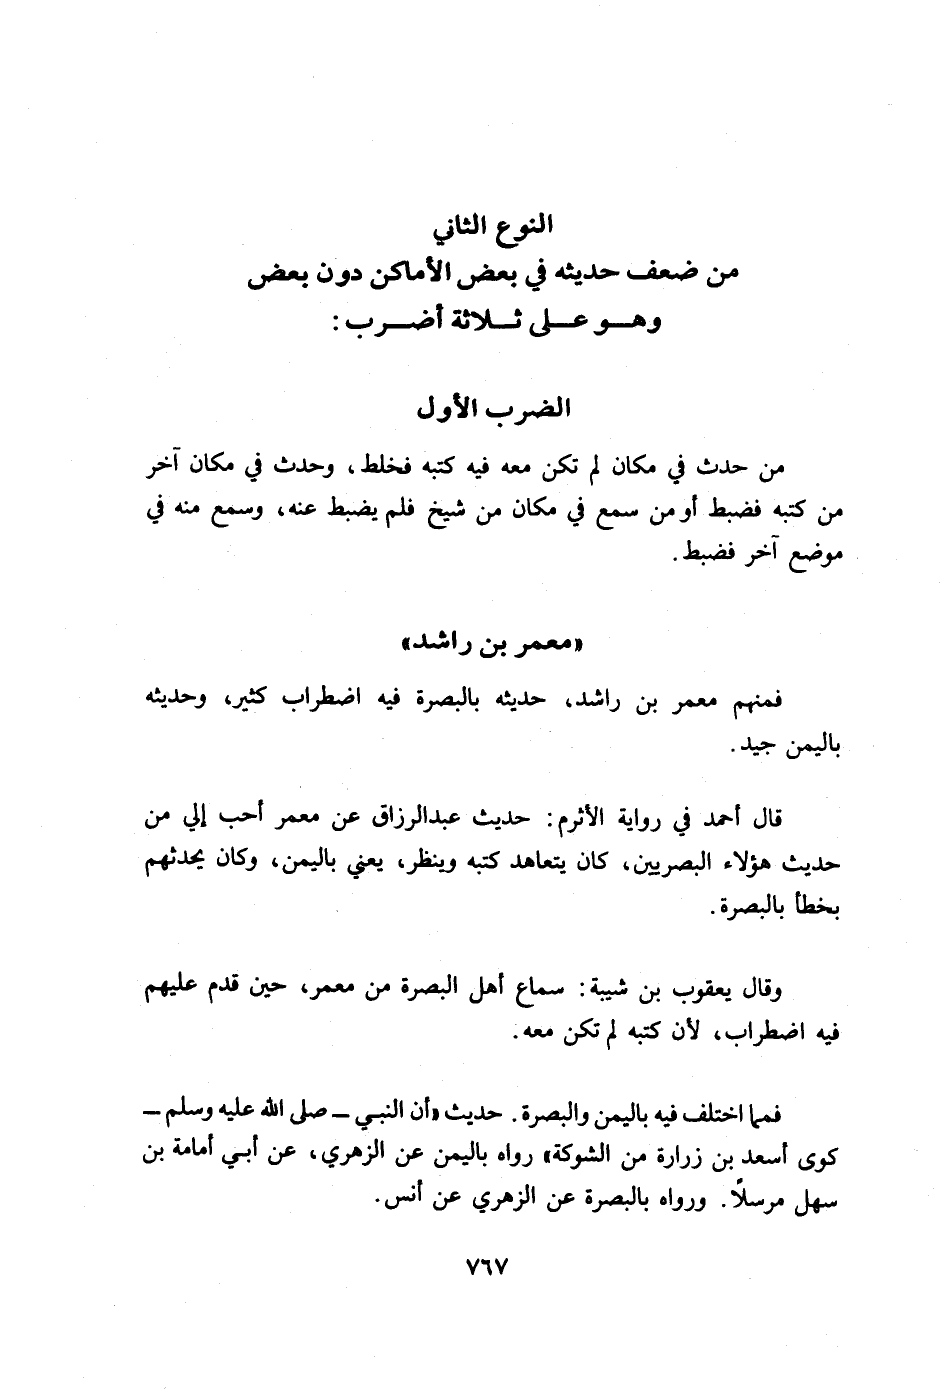 النوع الثاني
من ضعف حديثه في بعض الأماكن دون بعض
وهو على ثلاثة أضرب :
الضرب الأول
من حدث في مكان لم تكن معه فيه كتبه فخلط ، وحدث في مكان آخر
من كتبه فضبط أو من سمع في مكان من شيخ فلم يضبط عنه، وسمع منه في
موضع آخر فضبط .
«معمر بن راشد»
فمنهم معمر بن راشد، حديثه بالبصرة فيه اضطراب كثير، وحديثه
باليمن جيد .
قال أحمد في رواية الأثرم : حديث عبدالرزاق عن معمر أحب إلي من
حديث هؤلاء البصريين، كان يتعاهد كتبه وينظر، يعني باليمن، وكان يحدثهم
بخطأ بالبصرة .
وقال يعقوب بن شيبة : سماع أهل البصرة من معمر، حين قدم عليهم
فيه اضطراب، لأن كتبه لم تكن معه .
فمما اختلف فيه باليمن والبصرة . حديث «أن النبي – صلى الله عليه وسلم –
كوى أسعد بن زرارة من الشوكة» رواه باليمن عن الزهري، عن أبي أمامة بن
سهل مرسلاً . ورواه بالبصرة عن الزهري عن أنس .
٧٦٧